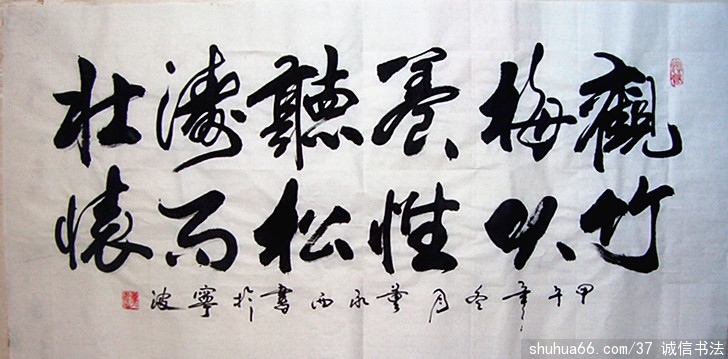 觀竹
梅以
養性
聽松
濤而
壯懷
甲午年冬月董永西書於寧波
shuhua66.com/37 诚信书法